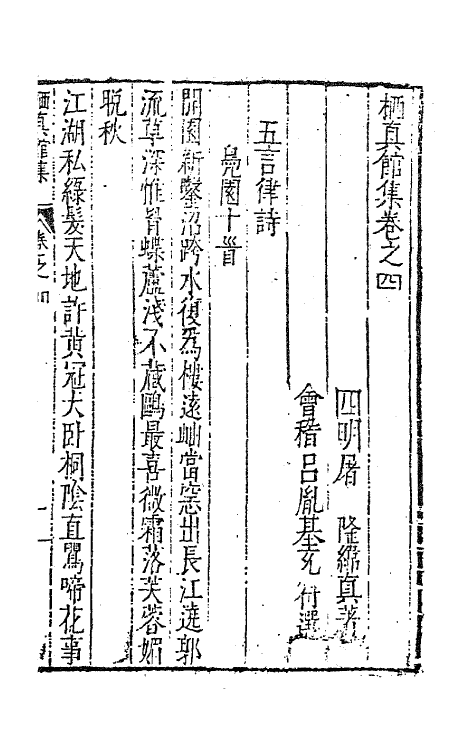 栖真館集卷之四
四明屠　隆緯真著
會稽呂胤基充符選
五言律詩
鳧園十首
開園新鑿沼跨水復爲樓遠岫當窓出長江遶郭
流草深惟冒蝶蘆淺不藏鷗最喜微霜落芙蓉媚
晚秋
江湖私綠髮天地許黃冠大卧桐陰直鶯啼花事
栖真館集　卷之四　一